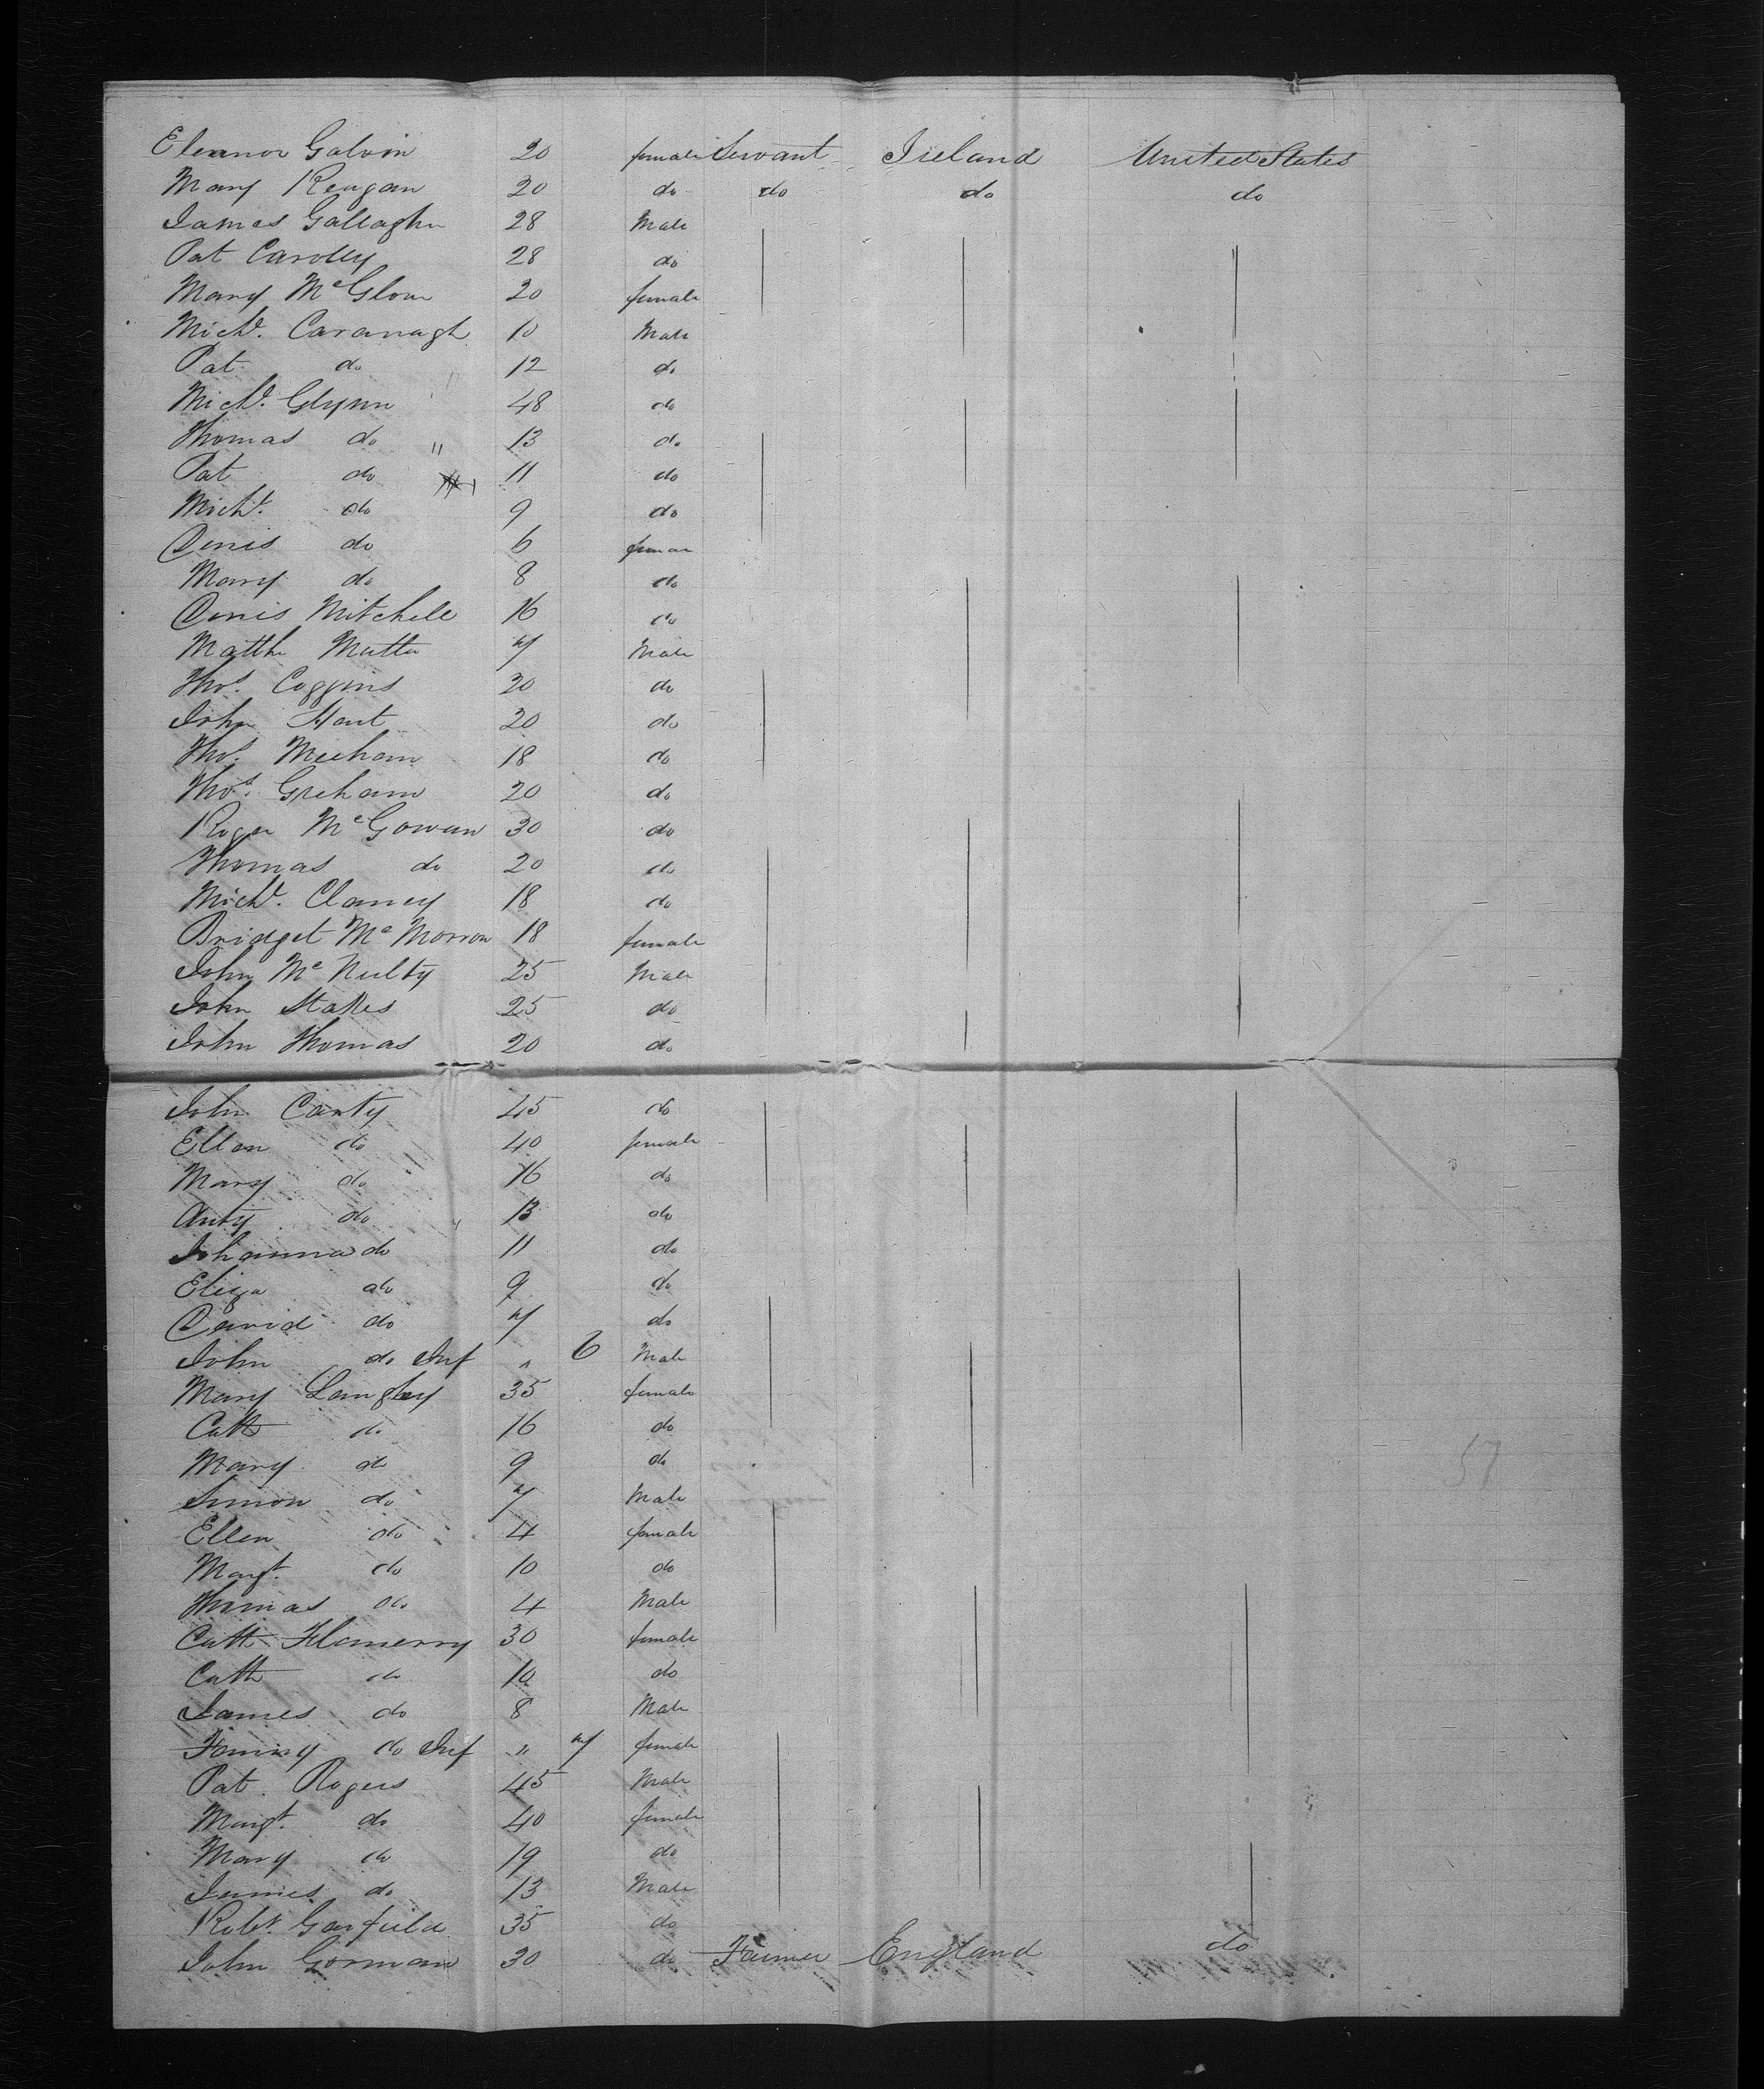 Eleanor Galvin 20 female Servant Ireland United States
Mary Reagan 20 do do do do
James Gallagher 28 Male
Pat Carolly 28 do
Mary McGlow 20 female
Michl. Cavanagh 10 Male
Pat do 12 do
Michl. Glynn 48 do
Thomas do " 13 do
Pat do 11 do
Michl. do 9 do
Denis do 6 female
Mary do 8 do
Denis Mitchell 16 do
Matth 7 Male
Thos. Coggins 20 do
John Hart 20 do
Thos. Meehan 18 do
Thos. Greham 20 do
Roger McGowan 30 do
Thomas do 20 do
Michl. Clancy 18 do
Bridget McMorrow 18 female
John McNulty 25 Male
John Stakes 25 do
John Thomas 20 do
John Canty 45 do
Ellen do 40 female
Mary do 16 do
Anty do " 13 do
Johanna do 11 do
Eliza do 9 do
David do 7 do
John do Inf " 6 Male
Mary Langley 35 female
Cath do 16 do
Mary do 9 do
Simon do 7 Male
Ellen do 4 female
Margt. do 10 do
Thomas do 4 Male
Cath Flannerry 30 female
Cath do 10 do
James do 8 Male
Fanny do Inf " 7 female
Pat Rogers 45 Male
Margt. do 40 female
Mary do 19 do
James do 13 Male
Robt. Garfield 35 do
John Gorman 30 do Farmer England do
57